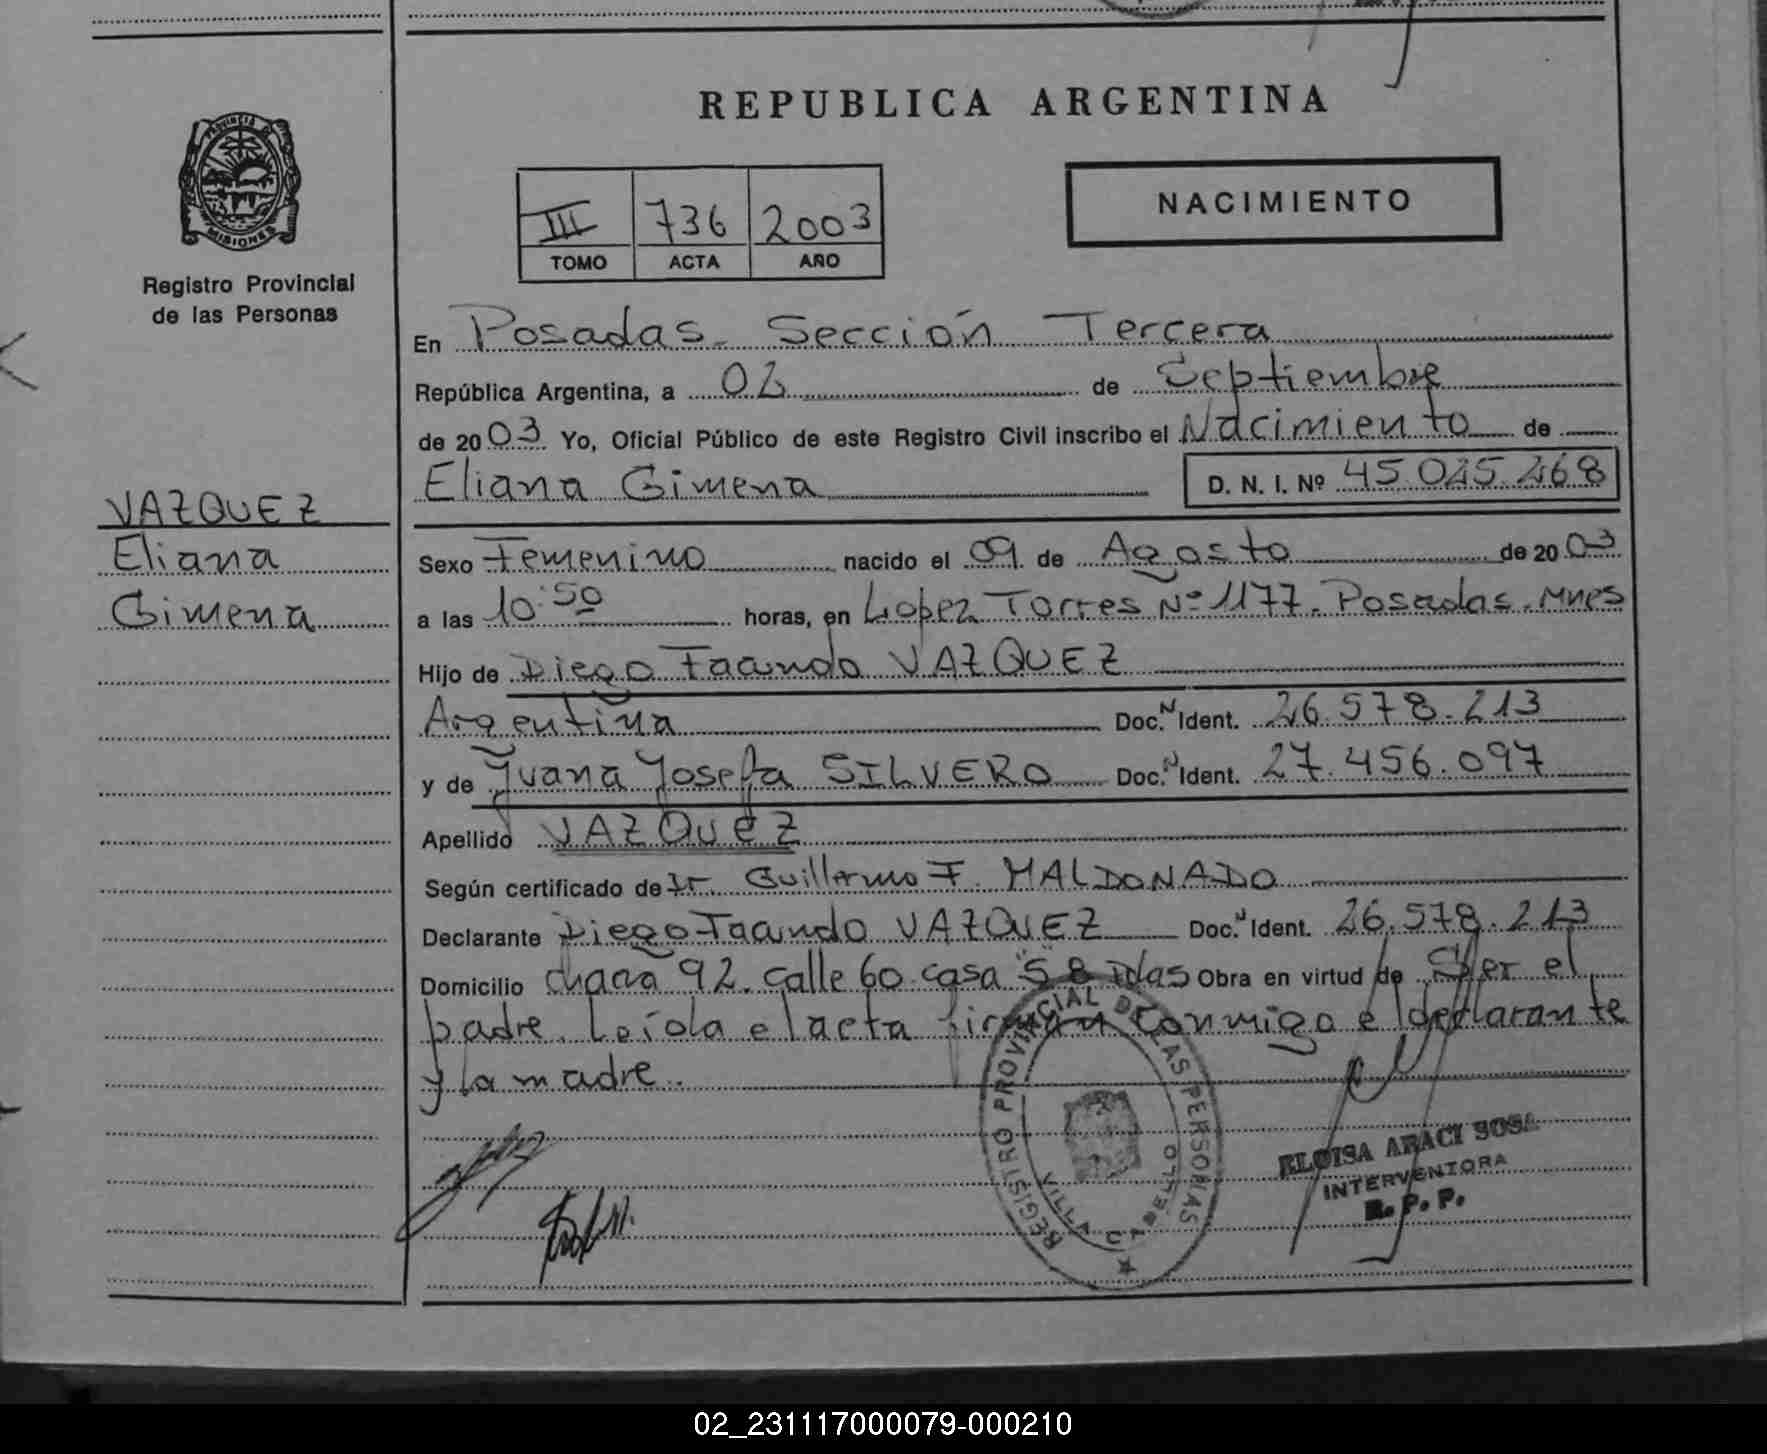 REPUBLICA ARGENTINA
PROVINCIA DE
MISIONES
Registro Provincial
de las Personas
III 736 2003
TOMO ACTA AÑO
NACIMIENTO
En Posadas. Sección Tercera
República Argentina, a 02 de Septiembre
de 2003 Yo, Oficial Público de este Registro Civil inscribo el Nacimiento de
Eliana Gimena D. N. I. Nº 45.025.268
VAZQUEZ
Eliana
Gimena
Sexo Femenino nacido el 09 de Agosto de 2003
a las 10:50 horas, en Lopez Torres Nº 1177. Posadas. Mnes
Hijo de Diego Facundo VAZQUEZ
Argentina Doc. N Ident. 26.578.213
y de Juana Josefa SILVERO Doc. N Ident. 27.456.097
Apellido VAZQUEZ
Según certificado de Dr. Guillermo F. MALDONADO
Declarante Diego Facundo VAZQUEZ Doc. N Ident. 26.578.213
Domicilio chacra 92. calle 60. casa 58 Pdas Obra en virtud de Ser el
padre. Leída el acta firman conmigo el declarante
y la madre.
REGISTRO PROVINCIAL DE LAS PERSONAS
VILLA CABELLO
ELOISA ARACI SOSA
INTERVENTORA
R. P. P.
02_231117000079-000210